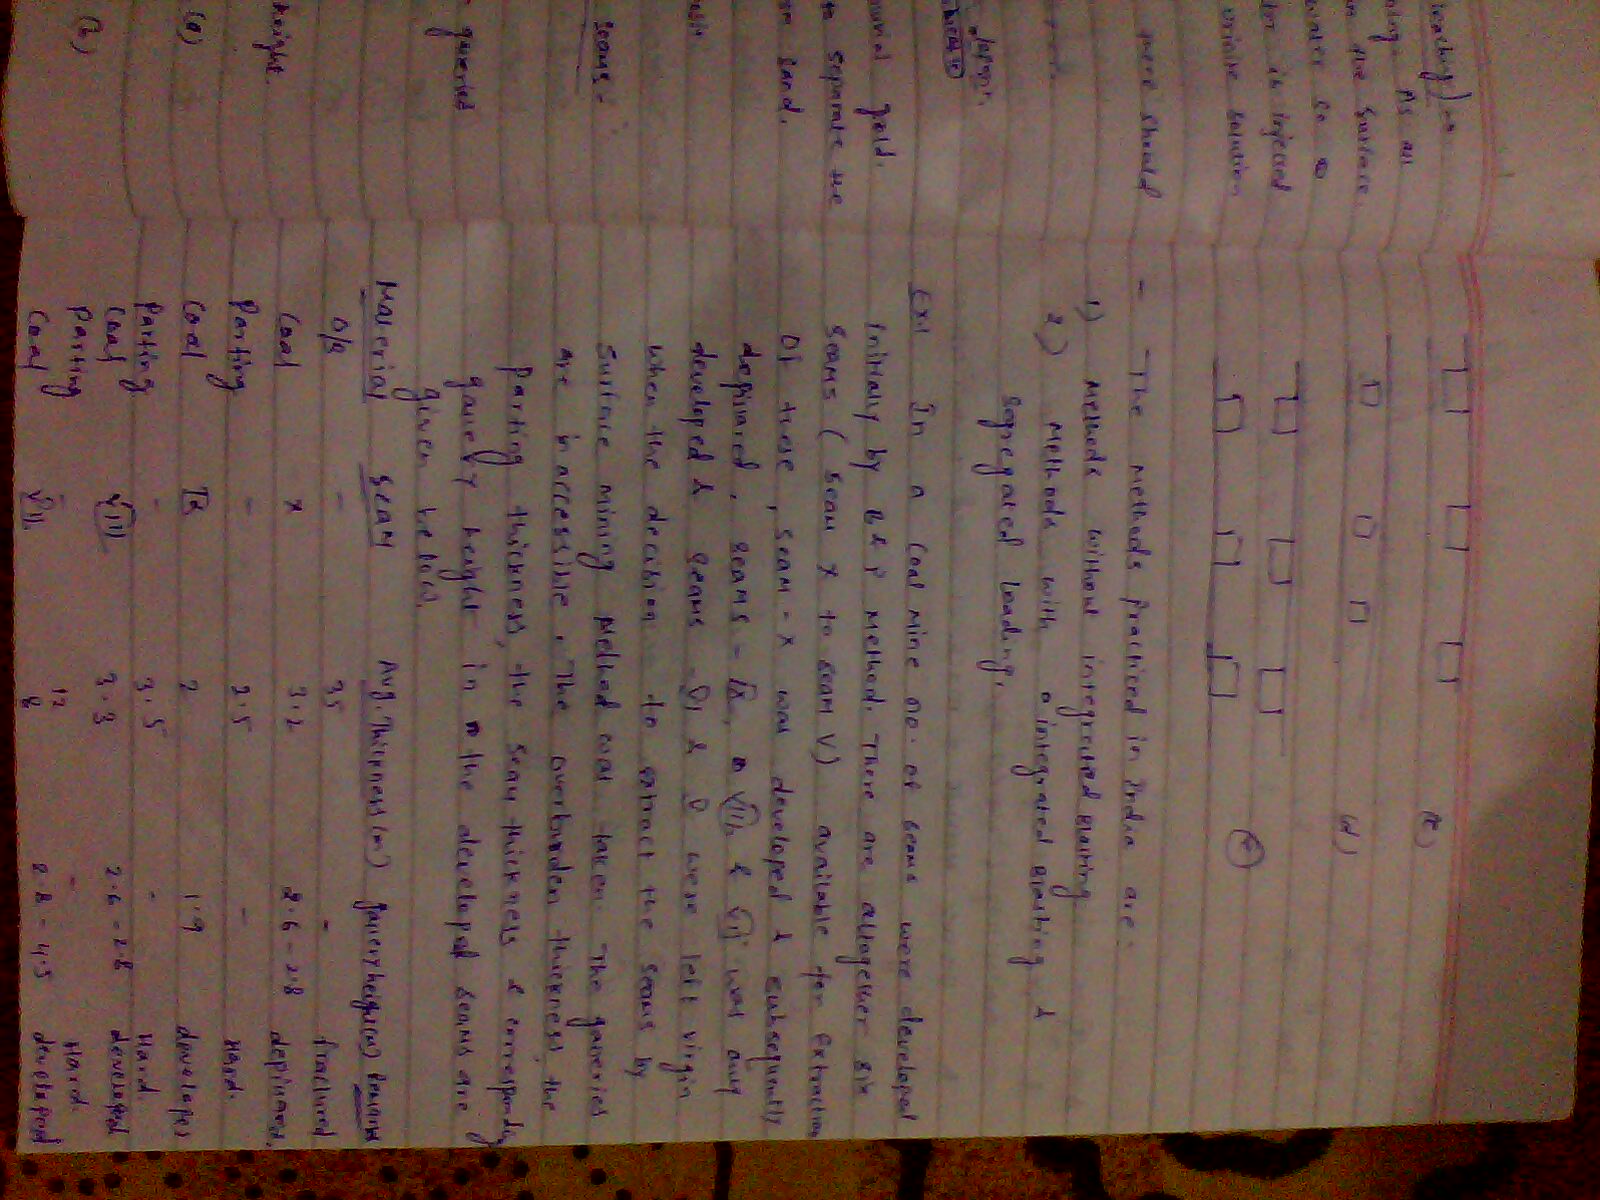 leaching)→
As an
the surface.
is injected
solution
were should
gold.
to separate the
sand.
seams:-
galleried
height
(a)
(b)
(c)
(d)
- The methods practiced in India are -
1) Methods without integrated blasting
2) Methods with integrated blasting &
segregated loading.
Ex:1 In a coal mine no. of seams were developed
initially by B & P method. There are altogether six
seams (seam X to seam V) available for extraction
Of these, seam - X was developed & subsequently
depillared, seams - IX, VIII & VII was only
developed & seams - VI & V were left virgin
when the decision to extract the seams by
surface mining method was taken. The galleries
are inaccessible. The overburden thickness, the
parting thickness, the seam thickness & corresponding
gallery height in the developed seams are
given below.
Material Seam Avg. Thickness(m) gallery height(m) Remarks
O/B - 35 - fractured
Coal X 3.2 2.6-2.8 depillared.
Parting - 2.5 - Hard.
Coal IX 2 1.9 developed
Parting - 3.5 - Hard.
Coal VIII 3.3 2.6-2.8 developed
Parting - 12 - Hard.
Coal VII 8 2.8-4.5 developed